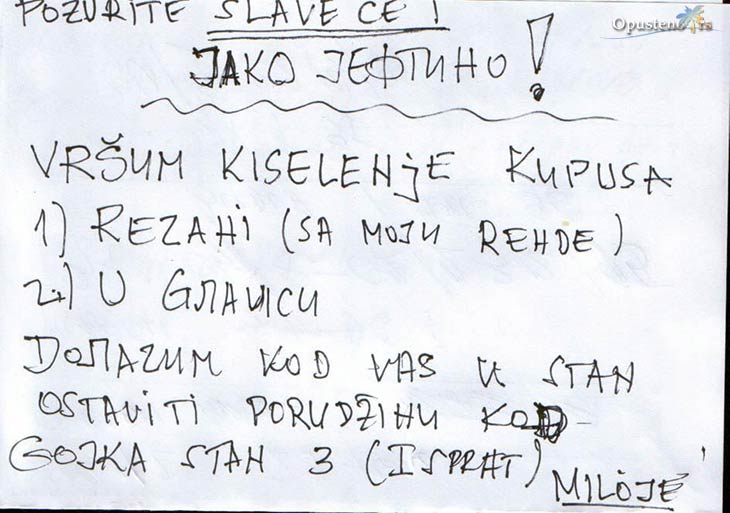 POŽURITE SLAVE ĆE !
Opusteno.rs
JAKO ЈЕФТИНО !
VRŠUM KISELENjE KUPUSA
1) REZAHI (SA MOJU REHDE)
2.) U GЛАVICU
DOЛАZUM KOD VAS U STAN
OSTAVITI PORUDŽIHU KOD
GOJKA STAH 3 (I SPRAT)
MILOJE